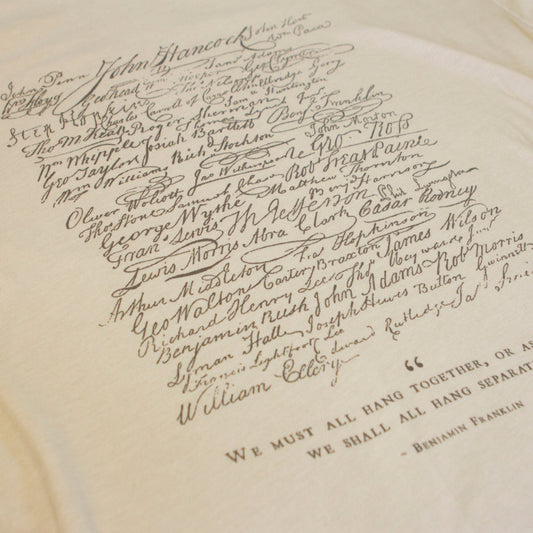 John Penn John Hancock John Hart
Wm Paca
Geo Read Wm Hooper Saml Adams Geo Clymer
Step Hopkins Charles Carroll of
Tho M:Kean Roger Sherman Sam Huntington
Wm Whipple
Geo Taylor Josiah Bartlett Benj Franklin
Wm Williams Richd Stockton John Morton
Oliver Wolcott Jno Witherspoon Geo Ross
Thos Stone Samuel Chase Robt Treat Paine
George Wythe Matthew Thornton
Fran Lewis Th Jefferson Benj Harrison
Lewis Morris Abra Clark Cæsar Rodney
Arthur Middleton Fra Hopkinson
Geo Walton Carter Braxton James Wilson
Richard Henry Lee Thos Heyward Junr
Benjamin Rush John Adams Robt Morris
Lyman Hall Joseph Hewes Button Gwinnett
Francis Lightfoot Lee
William Ellery Edward Rutledge Jas
“
We must all hang together, or as
we shall all hang separat
~ Benjamin Franklin